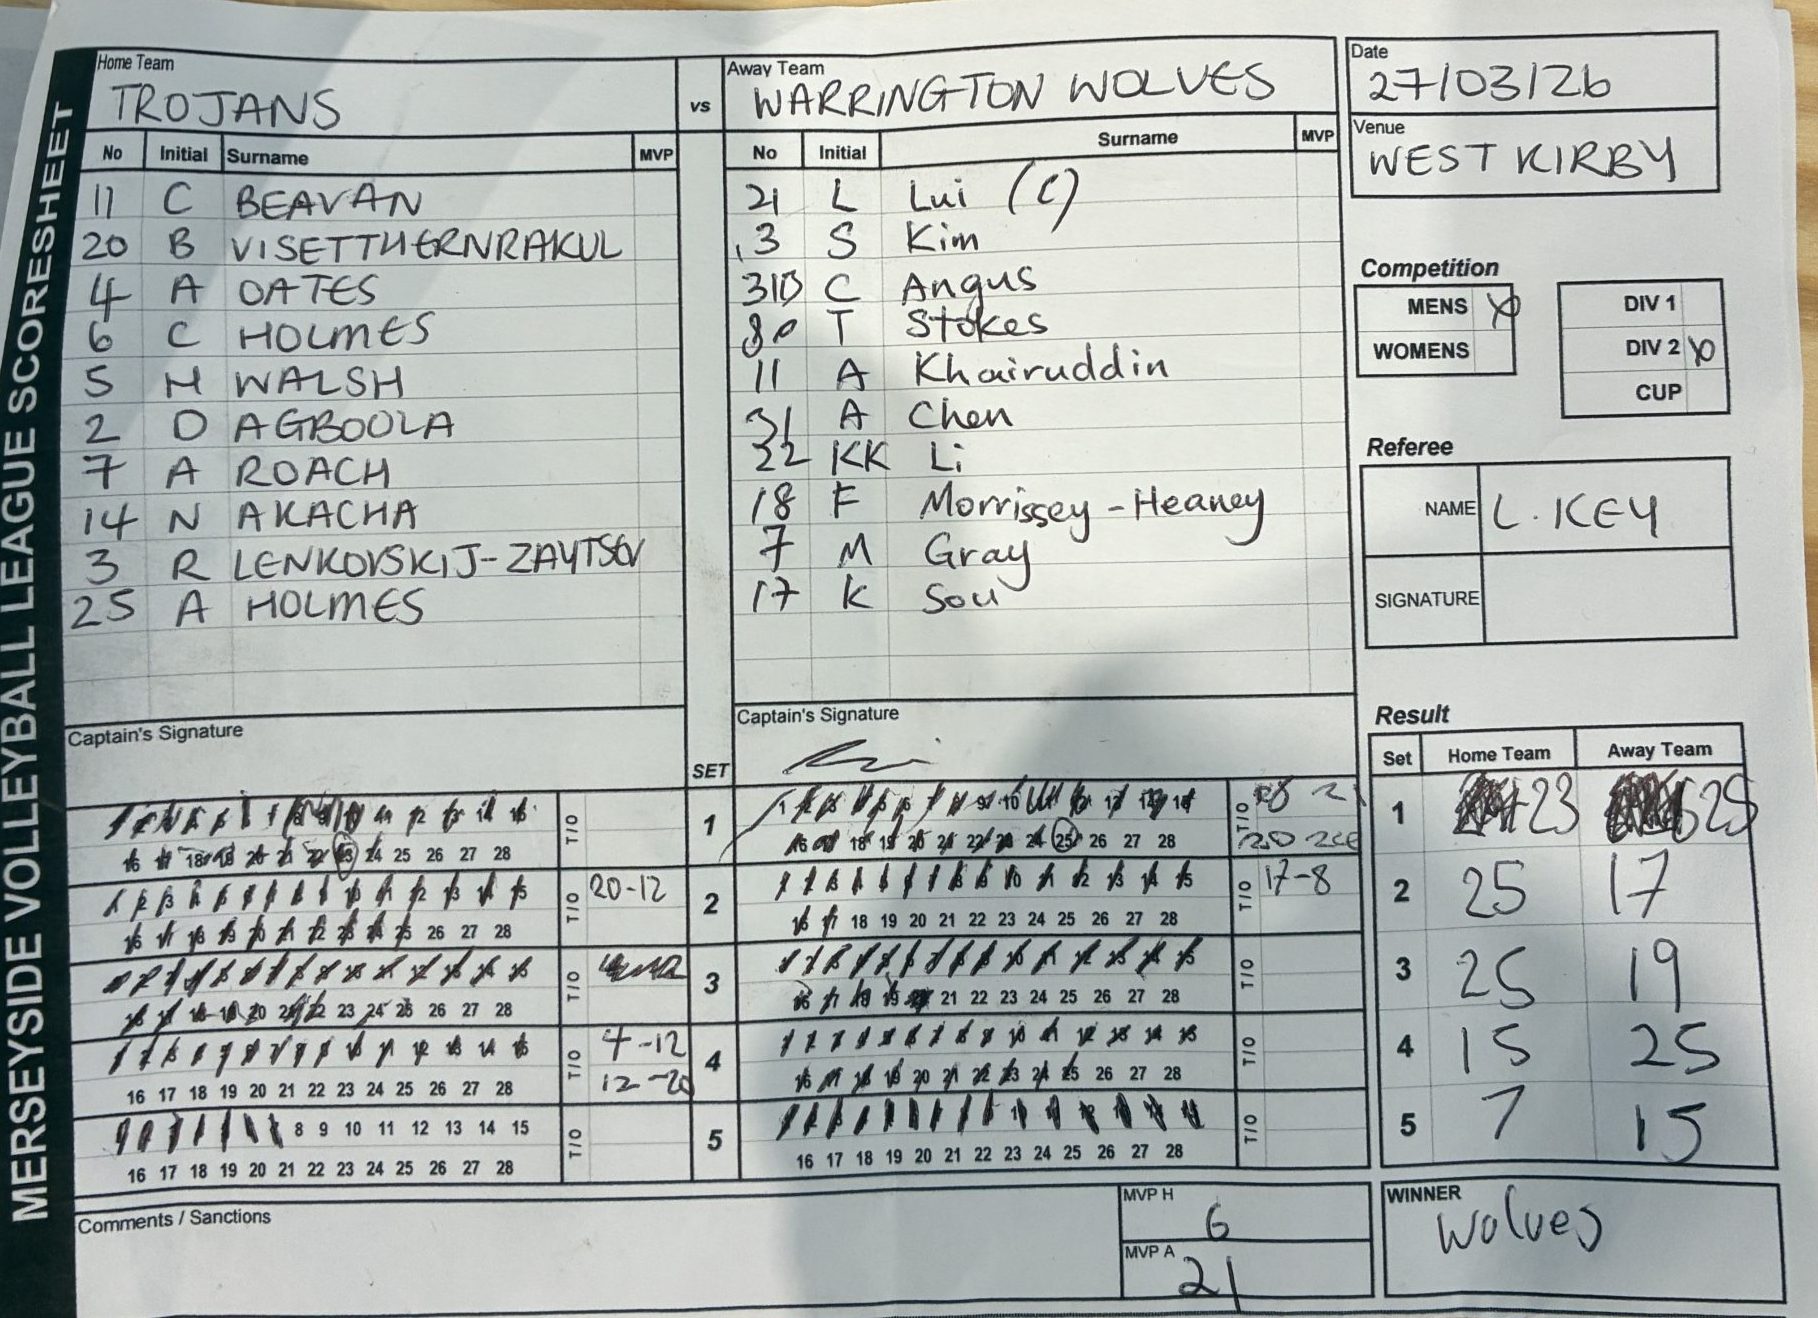 MERSEYSIDE VOLLEYBALL LEAGUE SCORESHEET
Home Team
TROJANS
vs
Away Team
WARRINGTON WOLVES
Date
27/03/26
Venue
WEST KIRBY
No Initial Surname MVP
11 C BEAVAN
20 B VISETTHERNRAKUL
4 A OATES
6 C HOLMES
5 H WALSH
2 O AGBOOLA
7 A ROACH
14 N AKACHA
3 R LENKOVSKIJ-ZAYTSEV
25 A HOLMES
No Initial Surname MVP
21 L Lui (C)
3 S Kim
C Angus
T Stokes
11 A Khairuddin
31 A Chen
22 KK Li
18 F Morrissey-Heaney
7 M Gray
17 K Sou
Competition
MENS X
WOMENS
DIV 1
DIV 2 X
CUP
Referee
NAME L. KEY
SIGNATURE
Captain's Signature
SET
Captain's Signature
T/O
1
T/O
25 26 27 28
26 27 28
T/O 20-12
2
T/O 17-8
26 27 28
18 19 20 21 22 23 24 25 26 27 28
T/O
3
T/O
26 27 28
21 22 23 24 25 26 27 28
T/O 4-12
12-20
4
T/O
16 17 18 19 20 21 22 23 24 25 26 27 28
26 27 28
8 9 10 11 12 13 14 15
T/O
5
T/O
16 17 18 19 20 21 22 23 24 25 26 27 28
16 17 18 19 20 21 22 23 24 25 26 27 28
Result
Set Home Team Away Team
1 23 25
2 25 17
3 25 19
4 15 25
5 7 15
Comments / Sanctions
MVP H
6
MVP A
21
WINNER
Wolves